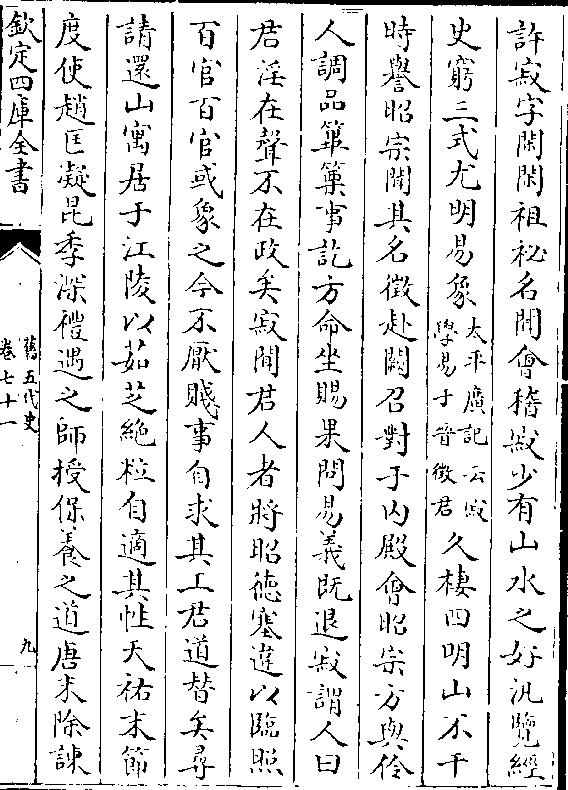 許寂字閑閑祖祕名聞會稽寂少有山水之好汎覽經
史窮三式尤明易象太平廣記云寂學易于晉徵君久棲四明山不干
時譽昭宗聞其名徵赴闕召對于内殿會昭宗方與伶
人調品篳篥事訖方命坐賜果問易義既退寂謂人曰
君淫在聲不在政矣寂聞君人者將昭德塞違以臨照
百官百官或象之今不厭賤事自求其工君道替矣尋
請還山寓居于江陵以茹芝絶粒自適其性天祐末節
度使趙匡凝昆季深禮遇之師授保養之道唐末除諫
欽定四庫全書
舊五代史
卷七十一
九